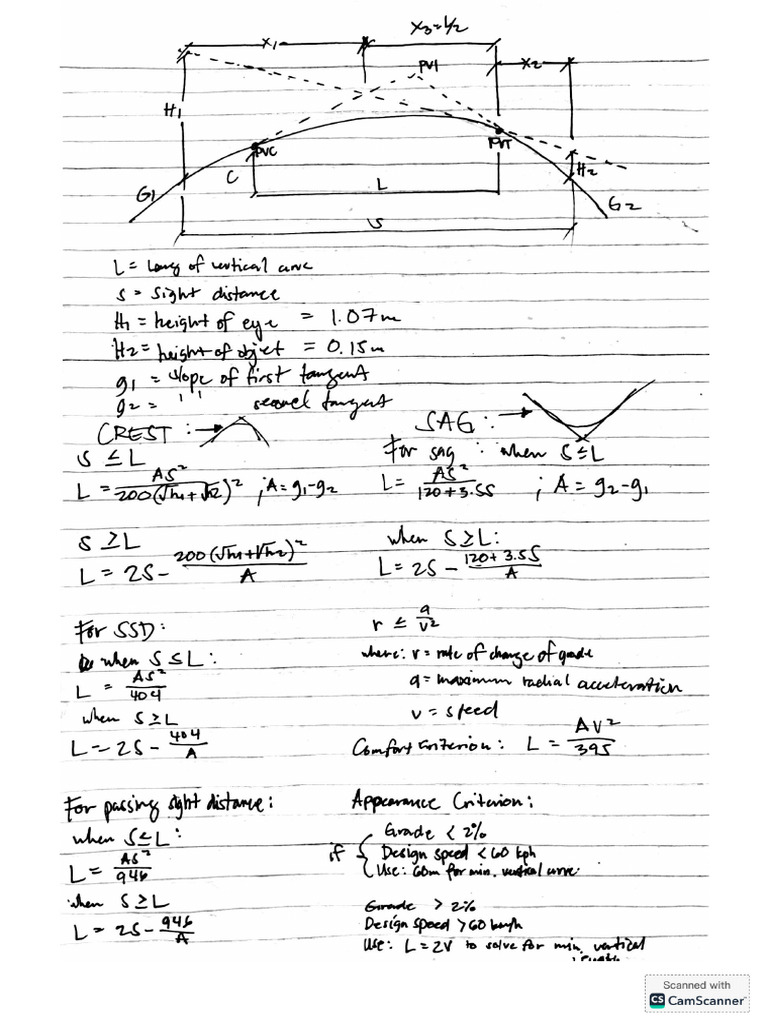 X₁
X₃=L/2
PVI
X₂
H₁
PVC
PVT
H₂
C
L
G₁
G₂
S
L = Long of vertical curve
S = Sight distance
H₁ = height of eye = 1.07m
H₂ = height of object = 0.15m
g₁ = slope of first tangent
g₂ = ' ' second tangent
CREST :→
S ≤ L
L = AS²/200(√h₁+√h₂)² ; A = g₁-g₂
S ≥ L
L = 2S - 200(√h₁+√h₂)²/A
SAG :→
For sag : when S ≤ L
L = AS²/120+3.5S ; A = g₂-g₁
when S ≥ L:
L = 2S - 120+3.5S/A
For SSD:
when S ≤ L:
L = AS²/404
when S ≥ L
L = 2S - 404/A
r ≤ a/v²
where: r = rate of change of grade
a = maximum radial acceleration
v = speed
Comfort Criterion: L = AV²/395
For passing sight distance:
when S ≤ L:
L = AS²/946
when S ≥ L
L = 2S - 946/A
Appearance Criterion:
if { Grade < 2%
Design speed < 60 kph
Use: 60m for min. vertical curve
Grade > 2%
Design speed > 60 kmph
Use: L = 2V to solve for min. vertical
length
Scanned with
CS CamScanner